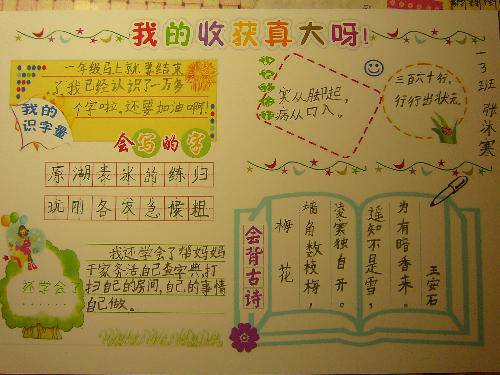 我的收获真大呀!
一年级马上就要结束
了我已经认识了一万多
个字啦,还要加油啊!
我的
识字量
会写的字
原湖表冰的练归
玩刚各发急候粗
我还学会了帮妈妈
干家务活自己查字典,打
扫自己的房间,自己的事情
自己做。
还学会了
......
寒从脚起,
病从口入。
三百六十行,
行行出状元。
一3班 张冰寒
会背古诗
梅花
墙角数枝梅,
凌寒独自开。
遥知不是雪,
为有暗香来。
王安石